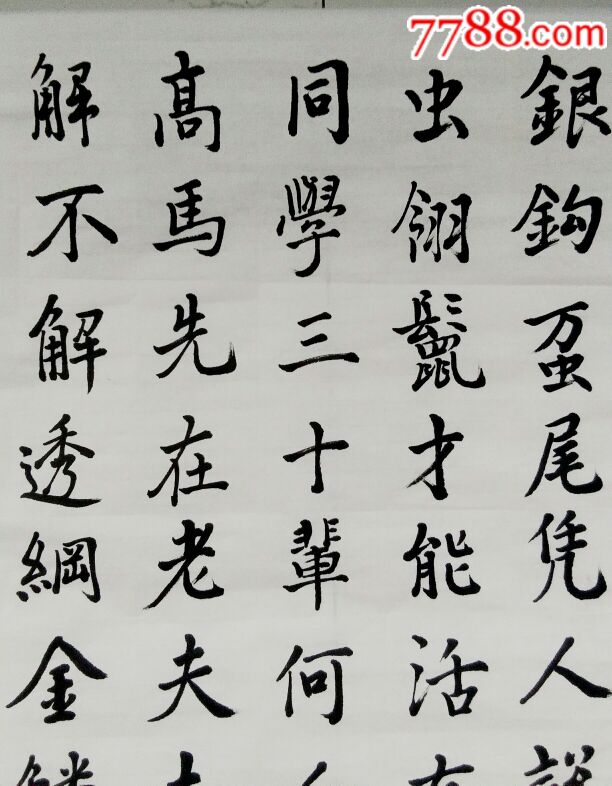 7788.com
銀鈎虿尾凭人説
虫翎鬣才能活
同學三十輩何
高馬先在老夫
解不解透綱金